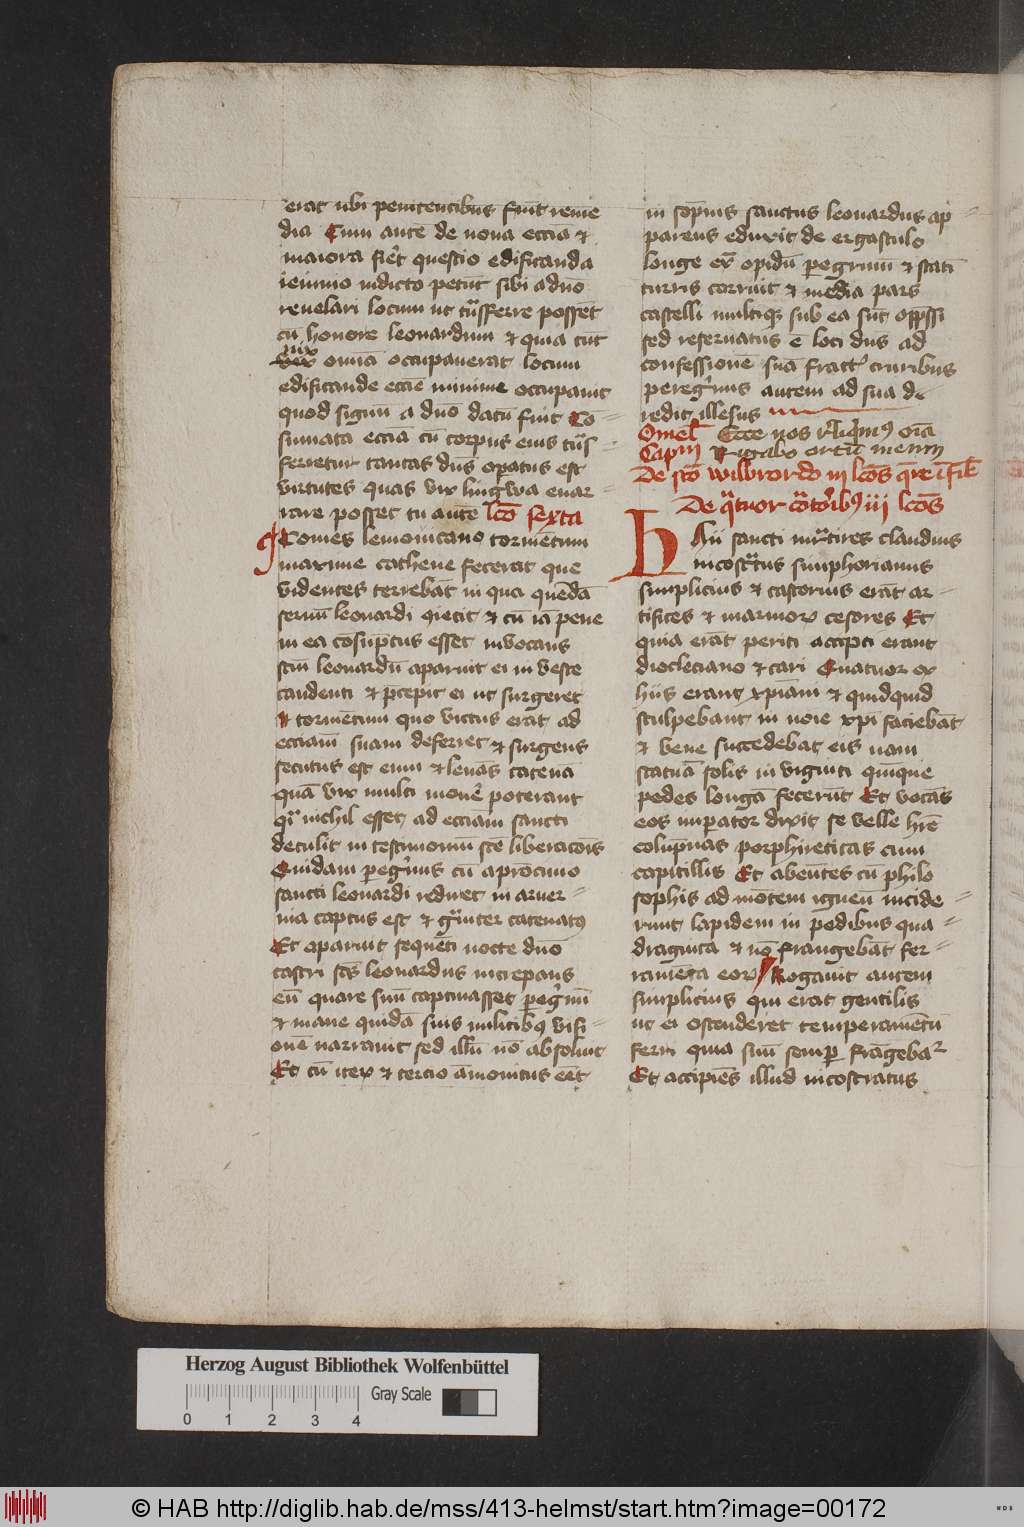 erat ubi penitentibus fiu͞t reme
dia Cum aute͞ de noua eccia͞ et
maiora fie͛t questio edificanda
ieiunio indicto petu͞t sibi a dn͞o
reuelari locum ut tra͞sferre posse͞t
cu͞ honore leonardum et quia cu͞t
nix
omia͞ occupauerat locum
edificande eccie͞ minime occupauit
quod signu͞ a dn͞o datu͞ fuit Co͞=
sumata eccia͞ cu͞ corpus eius tra͞s
ferretur tantas dn͞s opatus est
virtutes quas vix lingwa enar=
rare posset tu aute͞ lc͞o sexta
Comes lemouicano torme͞tum
maxime cathene fecerat que
videntes terreba͞t in qua que͞da͞
seruu͞ leonardi giecit et cu͞ ia͞ pene
in ea co͞su͞ptus esset invocans
sc͞m leonardu͞ aparuit ei in veste
candenti et p͞cepit ei ut surgeret
et torme͞tum quo victus erat ad
eccia͞m suam deferret et surgens
secutus est eum et leua͞s catena͞
qua͞ vix multi moue͛ poterant
qͥ nichil esset ad eccia͞m sancti
detulit in testimoniu͞ sue͞ liberaco͞is
Quidam peg͛nus cu͞ a p͛rocinio
sancti leonardi rediret in aruer=
nia captus est et gͣuiter catenatꝰ
Et aparuit seque͞ti nocte dn͞o
castri sc͞s leonardus increpans
eu͞ quare suu͞ captiuasset peg͛nu͞
et mane quida͞ suis militibꝫ visi=
one͞ narrauit sed illu͞ no͞ absoluit
Et cu͞ iterꝫ et tercio a͞monitus e͞et
in sop͞nis sanctus leonardus ap=
parens eduxit de ergastulo
longe ex͛ opidu͞ pegrinu͞ et stati͞
turris corruit et media pars
castelli multiqꝫ sub ea su͞t opp͞ssi
sed reseruatus e͞ loci dn͞s ad
confessione͞ sua͞ fractꝭ cruribus
peregr͛nus autem ad sua de
redit illesus
Omel͛ Ecce nos reliq͛mꝰ oi͞a
Cap͞m Rigabo ortu͞ meum
De sc͞o wilbrordo iii lc͞o͞s
De qͣtuor co͞ro͞atibꝰ iii lc͞o͞s
Hii sancti mͣrtires claudius
nicostrͣtus simphorianus
simplicius et castorius era͞t ar=
tifices et marmorꝫ cesores Et
quia era͞t periti accepti erant
diocleciano et cari Quatuor ex
hiis erant xp͞iani et quidquid
sculpebant in noi͞e xp͞i facieba͞t
et bene succedebat eis nam
statua͞ solis in viginti quinqꝫe
pedes longa͞ feceru͞t Et voca͞s
eos imperator dixit se velle h͞re
colup͞nas porphireticas cum
capitillis Et abeu͞ntes cu͞ philo
sophis ad mo͞tem igneu͞ incide=
runt lapidem in pedibus qua=
draginta et no͞ frangeba͞t fer=
ramenta eorꝫ Rogauit autem
simplicius qui erat gentilis
ut ei ostenderet temperame͞tu͞
ferri quia suu͞ semp͛ fra͞gebaᷣ
Et accipie͞s illud nicostratus
Herzog August Bibliothek Wolfenbüttel
0 1 2 3 4
Gray Scale
© HAB http://diglib.hab.de/mss/413-helmst/start.htm?image=00172